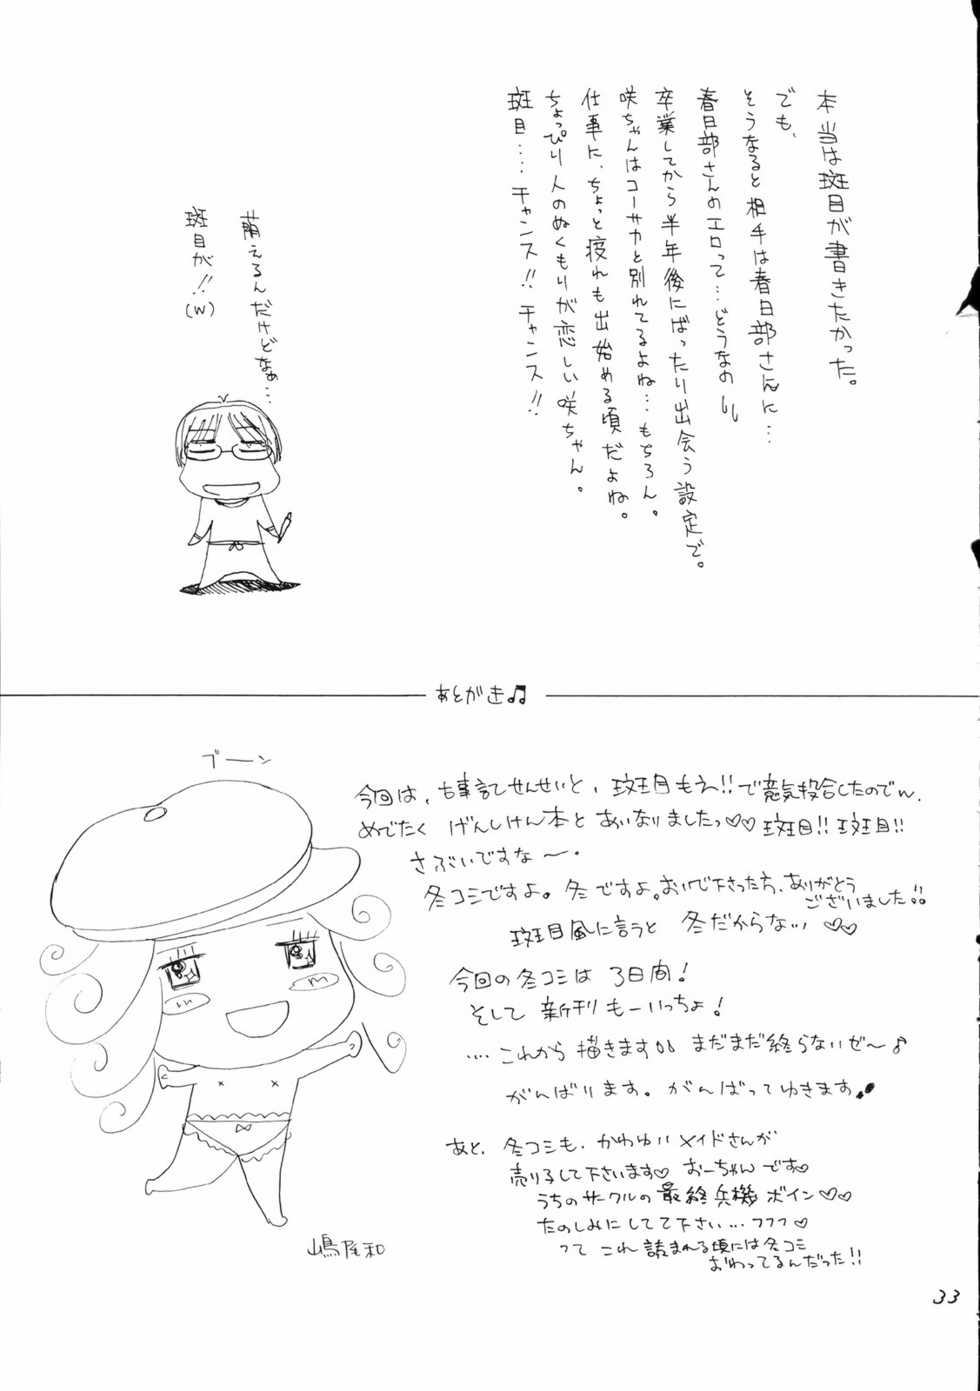 本当は斑目が書きたかった。
でも、
そうなると相手は春日部さんに…
春日部さんのエロって…どうなの!!
卒業してから半年後にばったり出会う設定で。
咲ちゃんはコーサカと別れてるよね…もちろん。
仕事に、ちょっと疲れも出始める頃だよね。
ちょっぴり人のぬくもりが恋しい咲ちゃん。
斑目…チャンス!!チャンス!!
萌えるんだけどなぁ…
斑目が!!(w)
あとがき♫
ブーン
今回は、古事記せんせいと、斑目もえ!!で意気投合したのでw、
めでたく げんしけん本と あいなりましたっ♡♡斑目!!斑目!!
さぶいですな〜。
冬コミですよ。冬ですよ。おいで下さった方、ありがとう
ございました!!
斑目風に言うと 冬だからな… ♡♡
今回の冬コミは 3日間!
そして 新刊もーいっちょ!
…これから 描きます まだまだ終らないぜ〜♪
がんばります。がんばってゆきます
あと、冬コミも、かわゆいメイドさんが
売り子して下さいます♡ おーちゃんです♡
うちのサークルの最終兵機 ボイン♡♡
たのしみにしてて下さい…フフフ♡
って これ 読まれる頃には冬コミ
おわってるんだった!!
嶋尾和
33